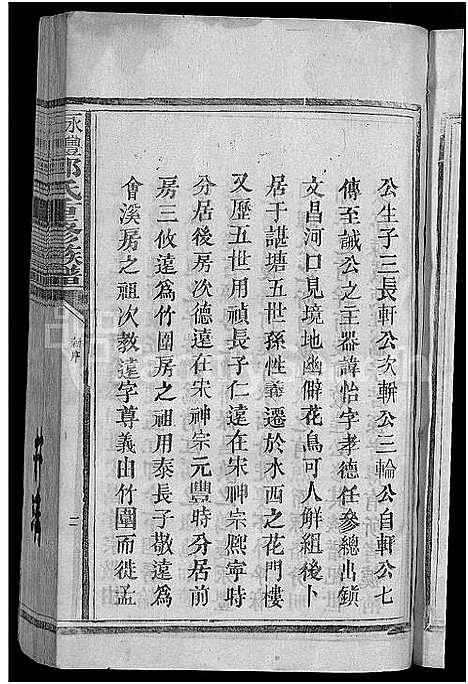 公生子三長軒公次輧公三輪公自軒公七
傳至誠公之主器諱怡字孝德任參總出鎮
文昌河口見境地幽僻花鳥可人解組後卜
居于諶塘五世孫性義遷於水西之花門樓
又歷五世用禎長子仁遠在宋神宗熈寧時
分居後房次德遠在宋神宗元豐時分居前
房三攸遠為竹園房之祖用泰長子敬遠為
會溪房之祖次教遠字尊義由竹園而徙孟
永豐 氏重修族譜
序